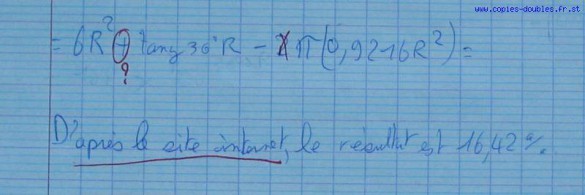 www.copies-doubles.fr.st
= 6R² + tang 30°R - π(0,9216R²) =
?
D'après le site internet, le résultat est 16,42%.